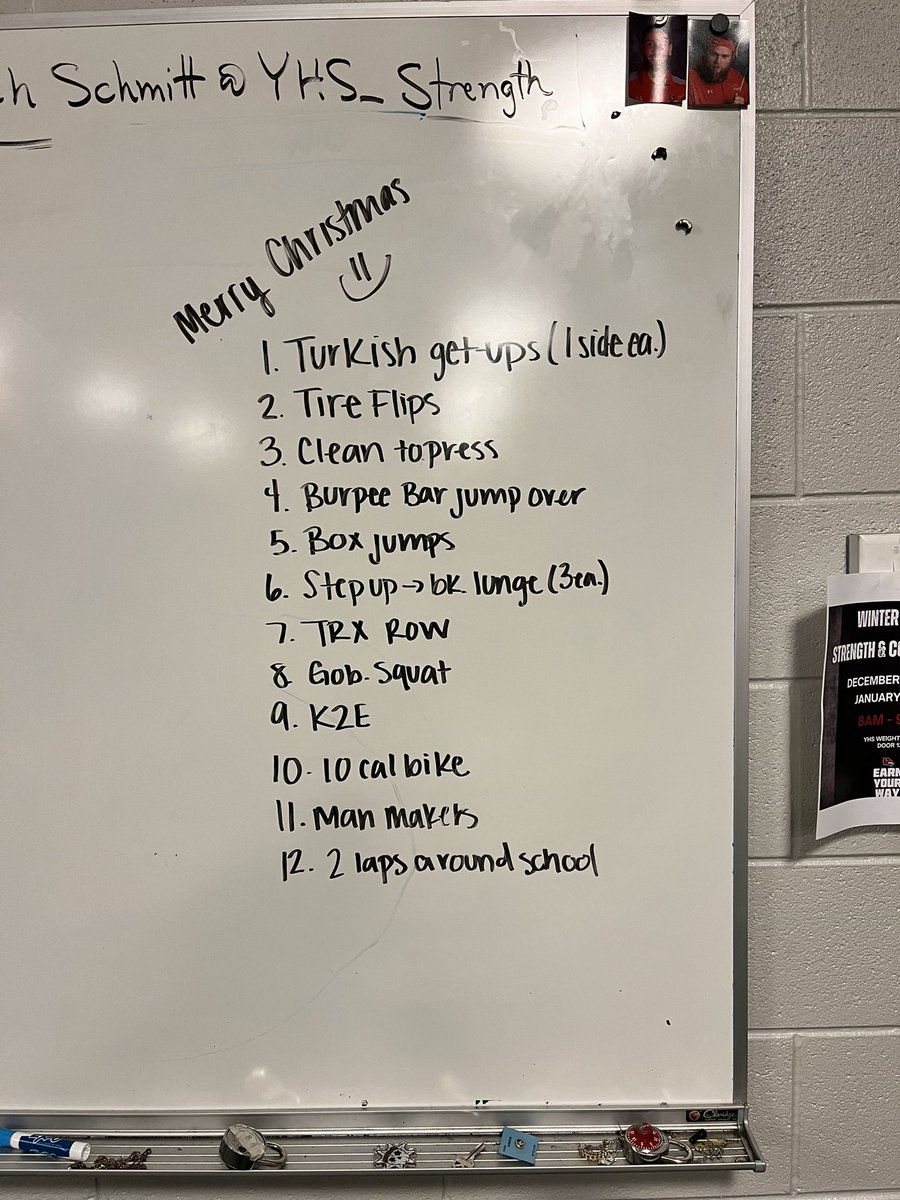 ch Schmitt @ YHS_Strength
Merry Christmas
1. Turkish get-ups (1 side ea.)
2. Tire Flips
3. Clean to press
4. Burpee Bar jump over
5. Box jumps
6. Step up → bk lunge (3ea.)
7. TRX ROW
8. Gob. Squat
9. K2E
10. 10 cal bike
11. Man makers
12. 2 laps around school
WINTER
STRENGTH & CO
DECEMBER
JANUARY
8AM - 9
YHS WEIGHT
DOOR 1
EARN
YOUR
WAY
Claridge